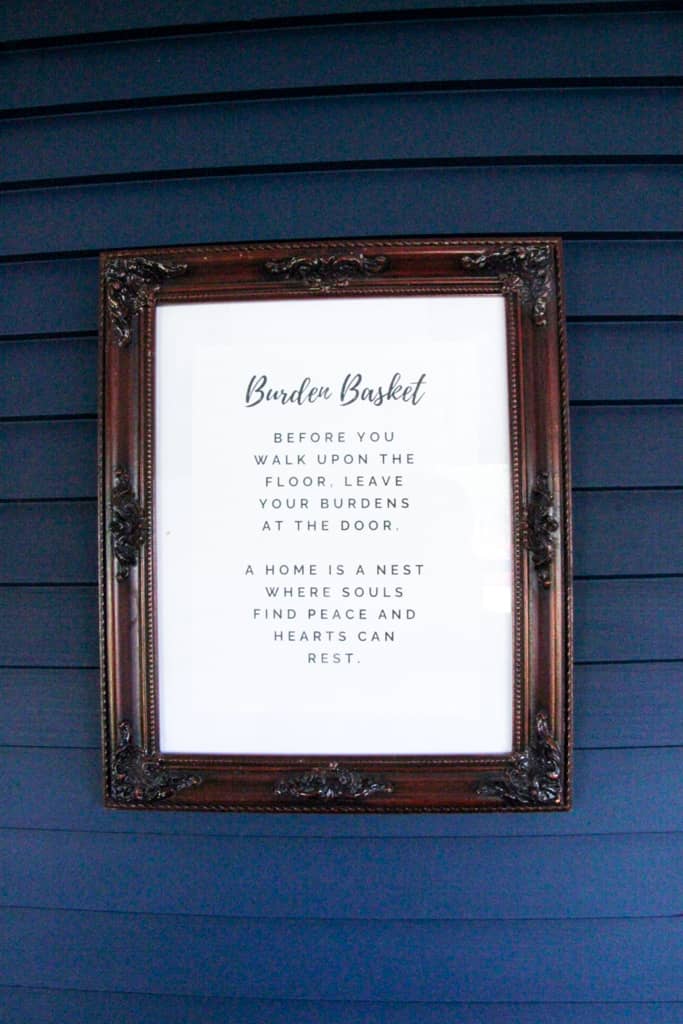 Burden Basket
BEFORE YOU
WALK UPON THE
FLOOR, LEAVE
YOUR BURDENS
AT THE DOOR.
A HOME IS A NEST
WHERE SOULS
FIND PEACE AND
HEARTS CAN
REST.